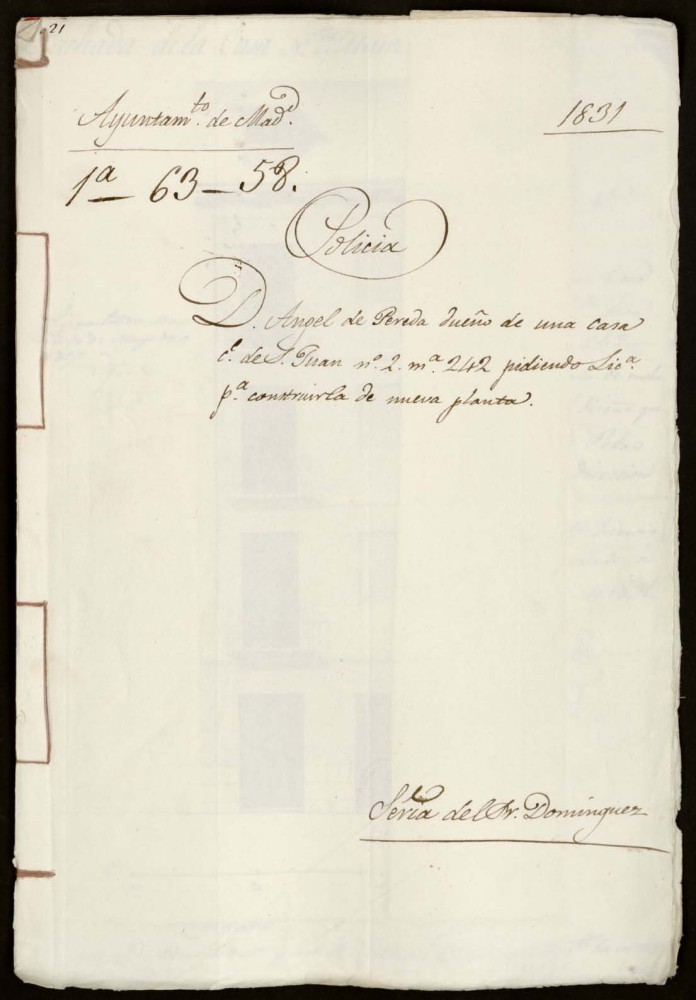 21
Ayuntam.to de Mad.d
1831
1ª — 63 — 58.
Policia
D. Angel de Pereda dueño de una casa
c.e de S. Juan nº. 2. m.a 242 pidiendo Lic.a
p.a construirla de nueva planta.
Serìa del Sr. Dominguez